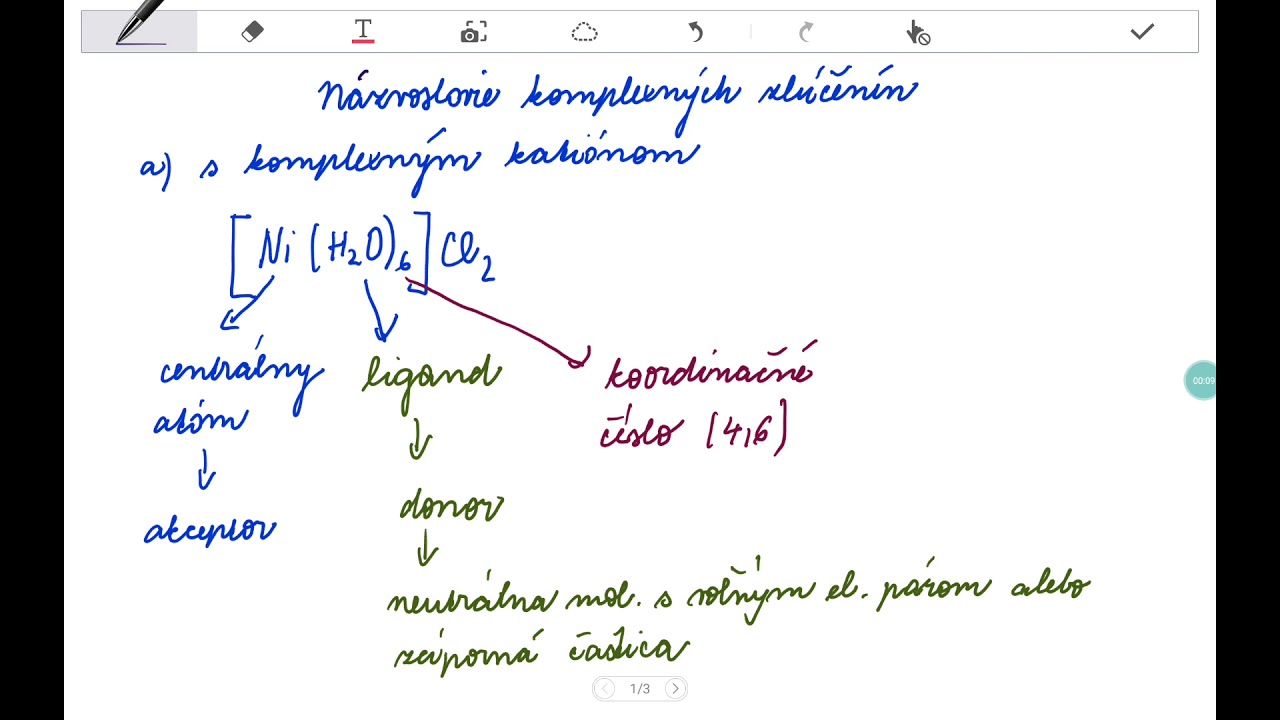 T
Názvoslovie komplexných zlúčenín
a) s komplexným katiónom
[Ni(H₂O)₆]Cl₂
centrálny
atóm
akceptor
ligand
donor
neutrálna mol. s voľným el. párom alebo
záporná častica
koordinačné
číslo (4,6)
00:09
1/3